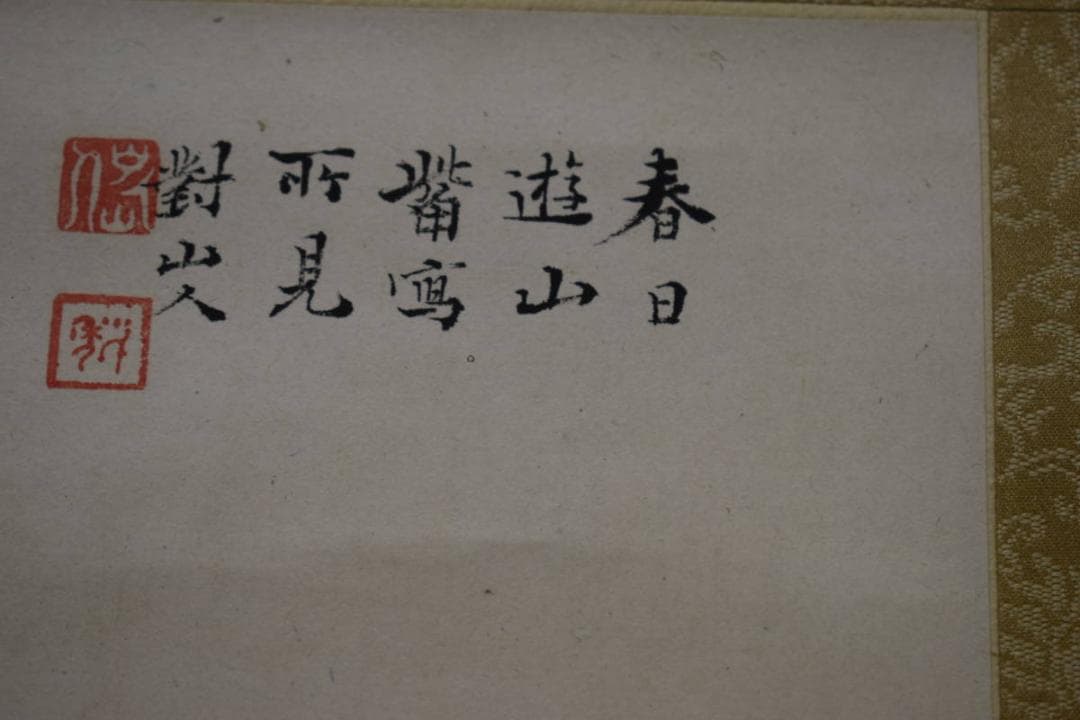 春日
遊山
觜寫
所見
對山人